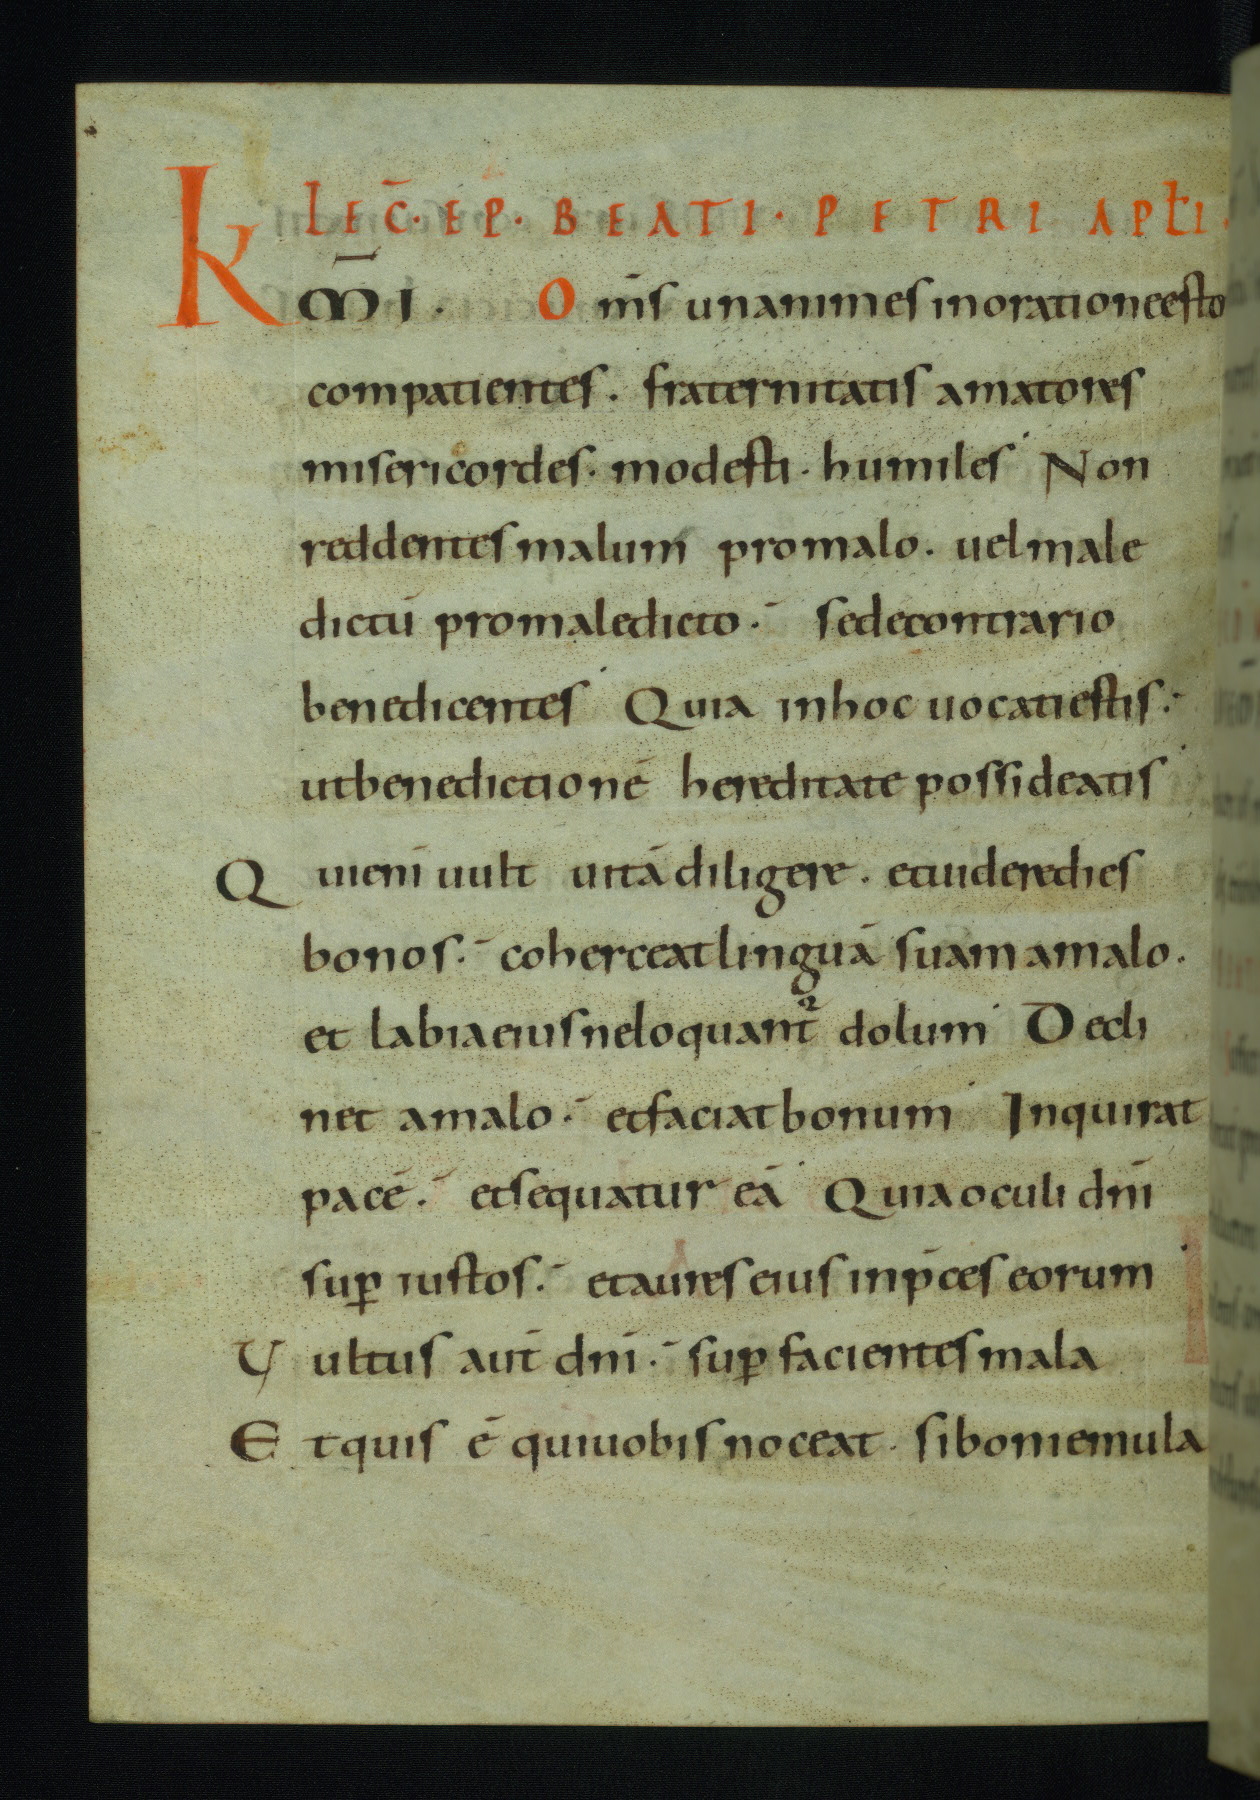 LEC̄· EP· BEATI· PETRI APƚI·
Km̄i· Om̄s unanimes inorationeesto
compatientes. fraternitatis amatores
misericordes. modesti. humiles Non
reddentes malum promalo. uel male
dictū promaledicto. sedecontrario
benedicentes Quia inhoc uocatiestis.
utbenedictionē hereditate possideatis
Qui eni uult uitā diligere. etuideredies
bonos. coherceat linguā suam amalo.
et labia eius neloquant᷑ dolum Decli
net amalo. etfaciat bonum Inquirat
pacē. etsequatur eā Quia oculi dn̄i
suꝑ iustos. etaures eius inp̄ces eorum
Vultus aut̄ dn̄i. suꝑ facientes mala
Etquis ē quiuobis noceat. siboniemula